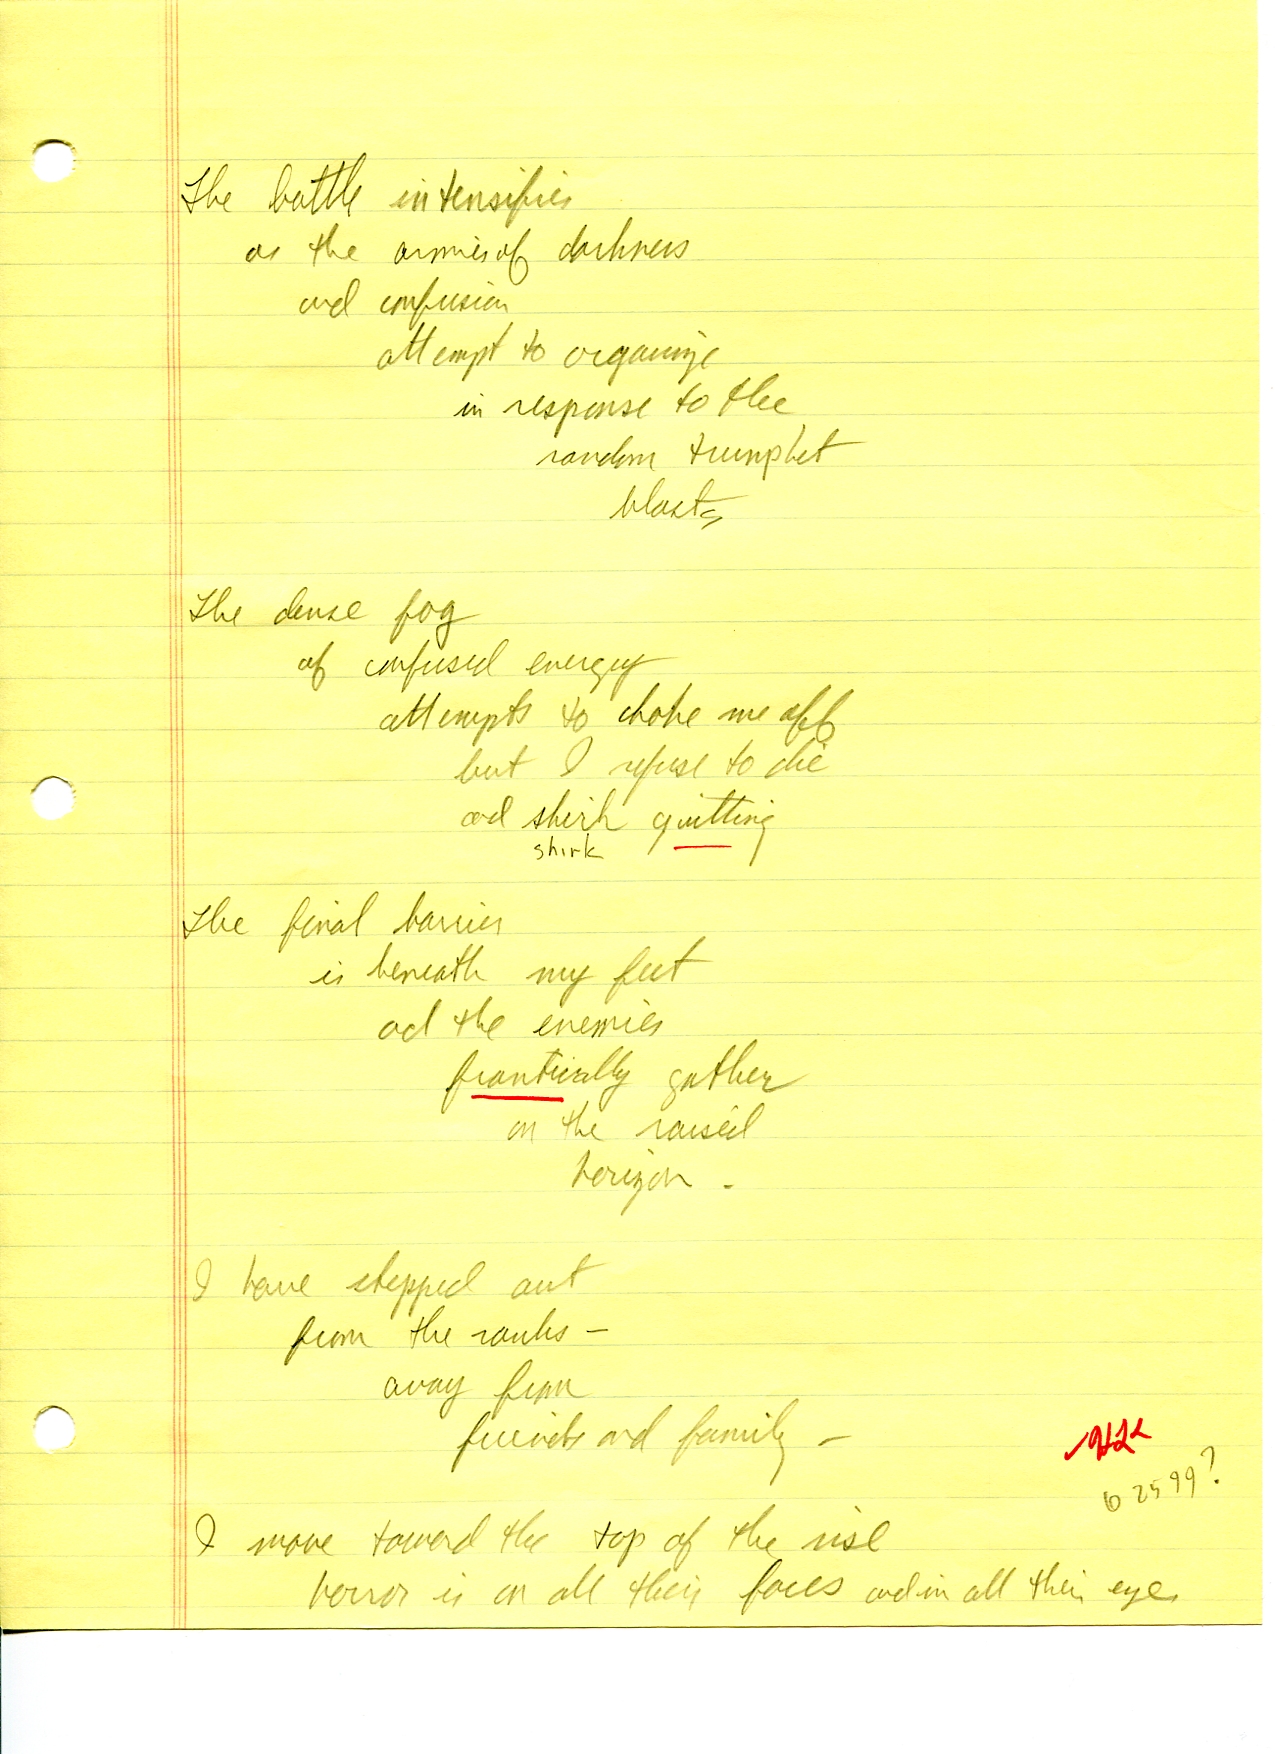 The battle intensifies
as the armies of darkness
and confusion
attempt to organize
in response to the
random trumphet
blasts
The dense fog
of confused energy
attempts to choke me off
but I refuse to die
and shirk quitting
shirk
The final barrier
is beneath my feet
and the enemies
frantically gather
on the raised
horizon -
I have stepped out
from the ranks -
away from
friends and family -
6 25 99?
I move toward the top of the rise
horror is on all their faces and in all their eyes